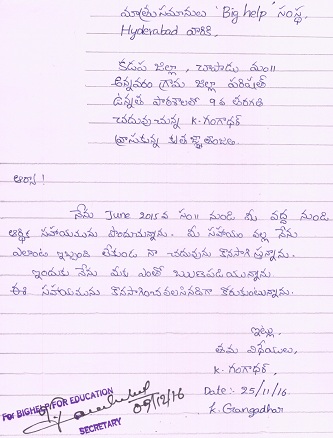 మాతృసమానులు 'Big help' సంస్థ,
Hyderabad వారికి.
కడప జిల్లా, చాపాడు మం॥
అన్నవరం గ్రామ జిల్లా పరిషత్
ఉన్నత పాఠశాలలో 9వ తరగతి
చదువుచున్న K. గంగాధర్
వ్రాసుకున్న కృతజ్ఞతాంజలి.
ఆర్యా!
నేను June 2015వ సం॥ నుండి మీ వద్ద నుండి
ఆర్థిక సహాయమును పొందుచున్నాను. మీ సహాయం వల్ల నేను
ఎలాంటి ఇబ్బంది లేకుండ నా చదువును కొనసాగిస్తున్నాను.
ఇందుకు నేను మీకు ఎంతో ఋణపడియున్నాను.
ఈ సహాయమును కొనసాగించవలసినదిగా కోరుకుంటున్నాను.
ఇట్లు,
తమ విధేయులు,
K. గంగాధర్,
Date:- 25/11/16.
K. Gangadhar
For BIGHELP FOR EDUCATION
09/12/16
SECRETARY